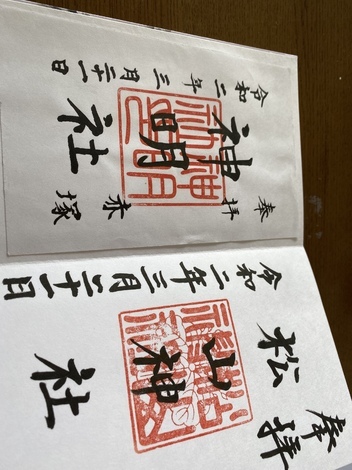 奉拝 赤塚
神明社
令和二年三月二十一日
奉拝
松山神社
令和二年三月二十一日